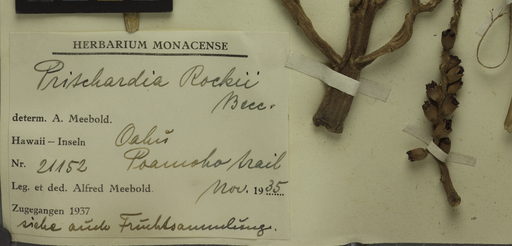 HERBARIUM MONACENSE
Pritchardia Rockii
Becc.
determ. A. Meebold.
Hawaii – Inseln Oahu
Nr. 21152 Poamoho trail
Leg. et ded. Alfred Meebold. Nov. 1935
Zugegangen 1937
siehe auch Fruchtsammlung.